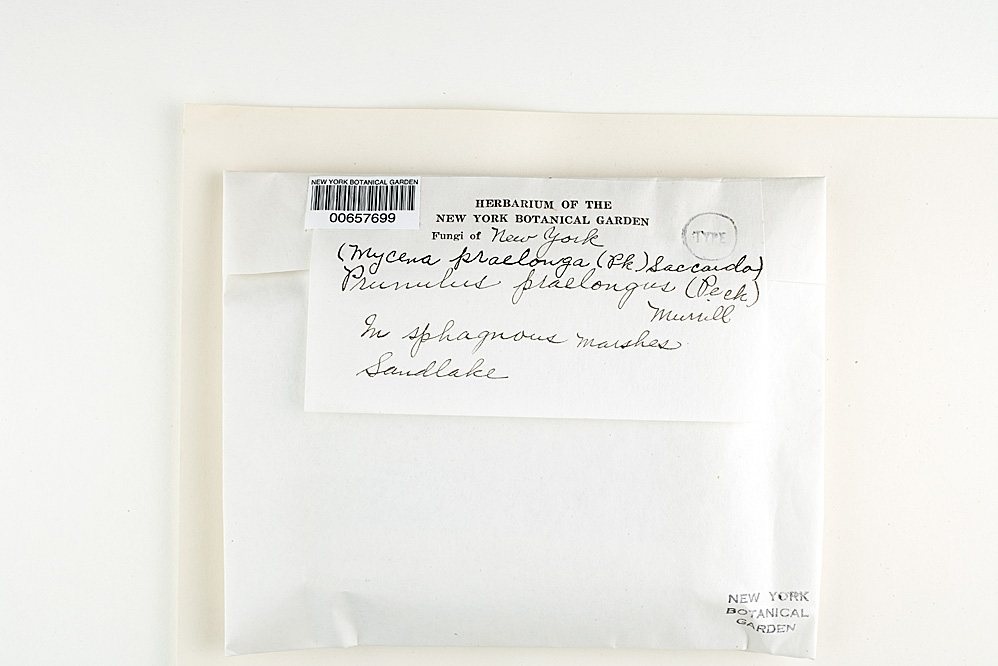 NEW YORK BOTANICAL GARDEN
00657699
HERBARIUM OF THE
NEW YORK BOTANICAL GARDEN
Fungi of New York
TYPE
(Mycena praelonga (Pk) Saccardo)
Prunulus praelongus (Peck)
Murrill
In sphagnous marshes
Sandlake
NEW YORK
BOTANICAL
GARDEN